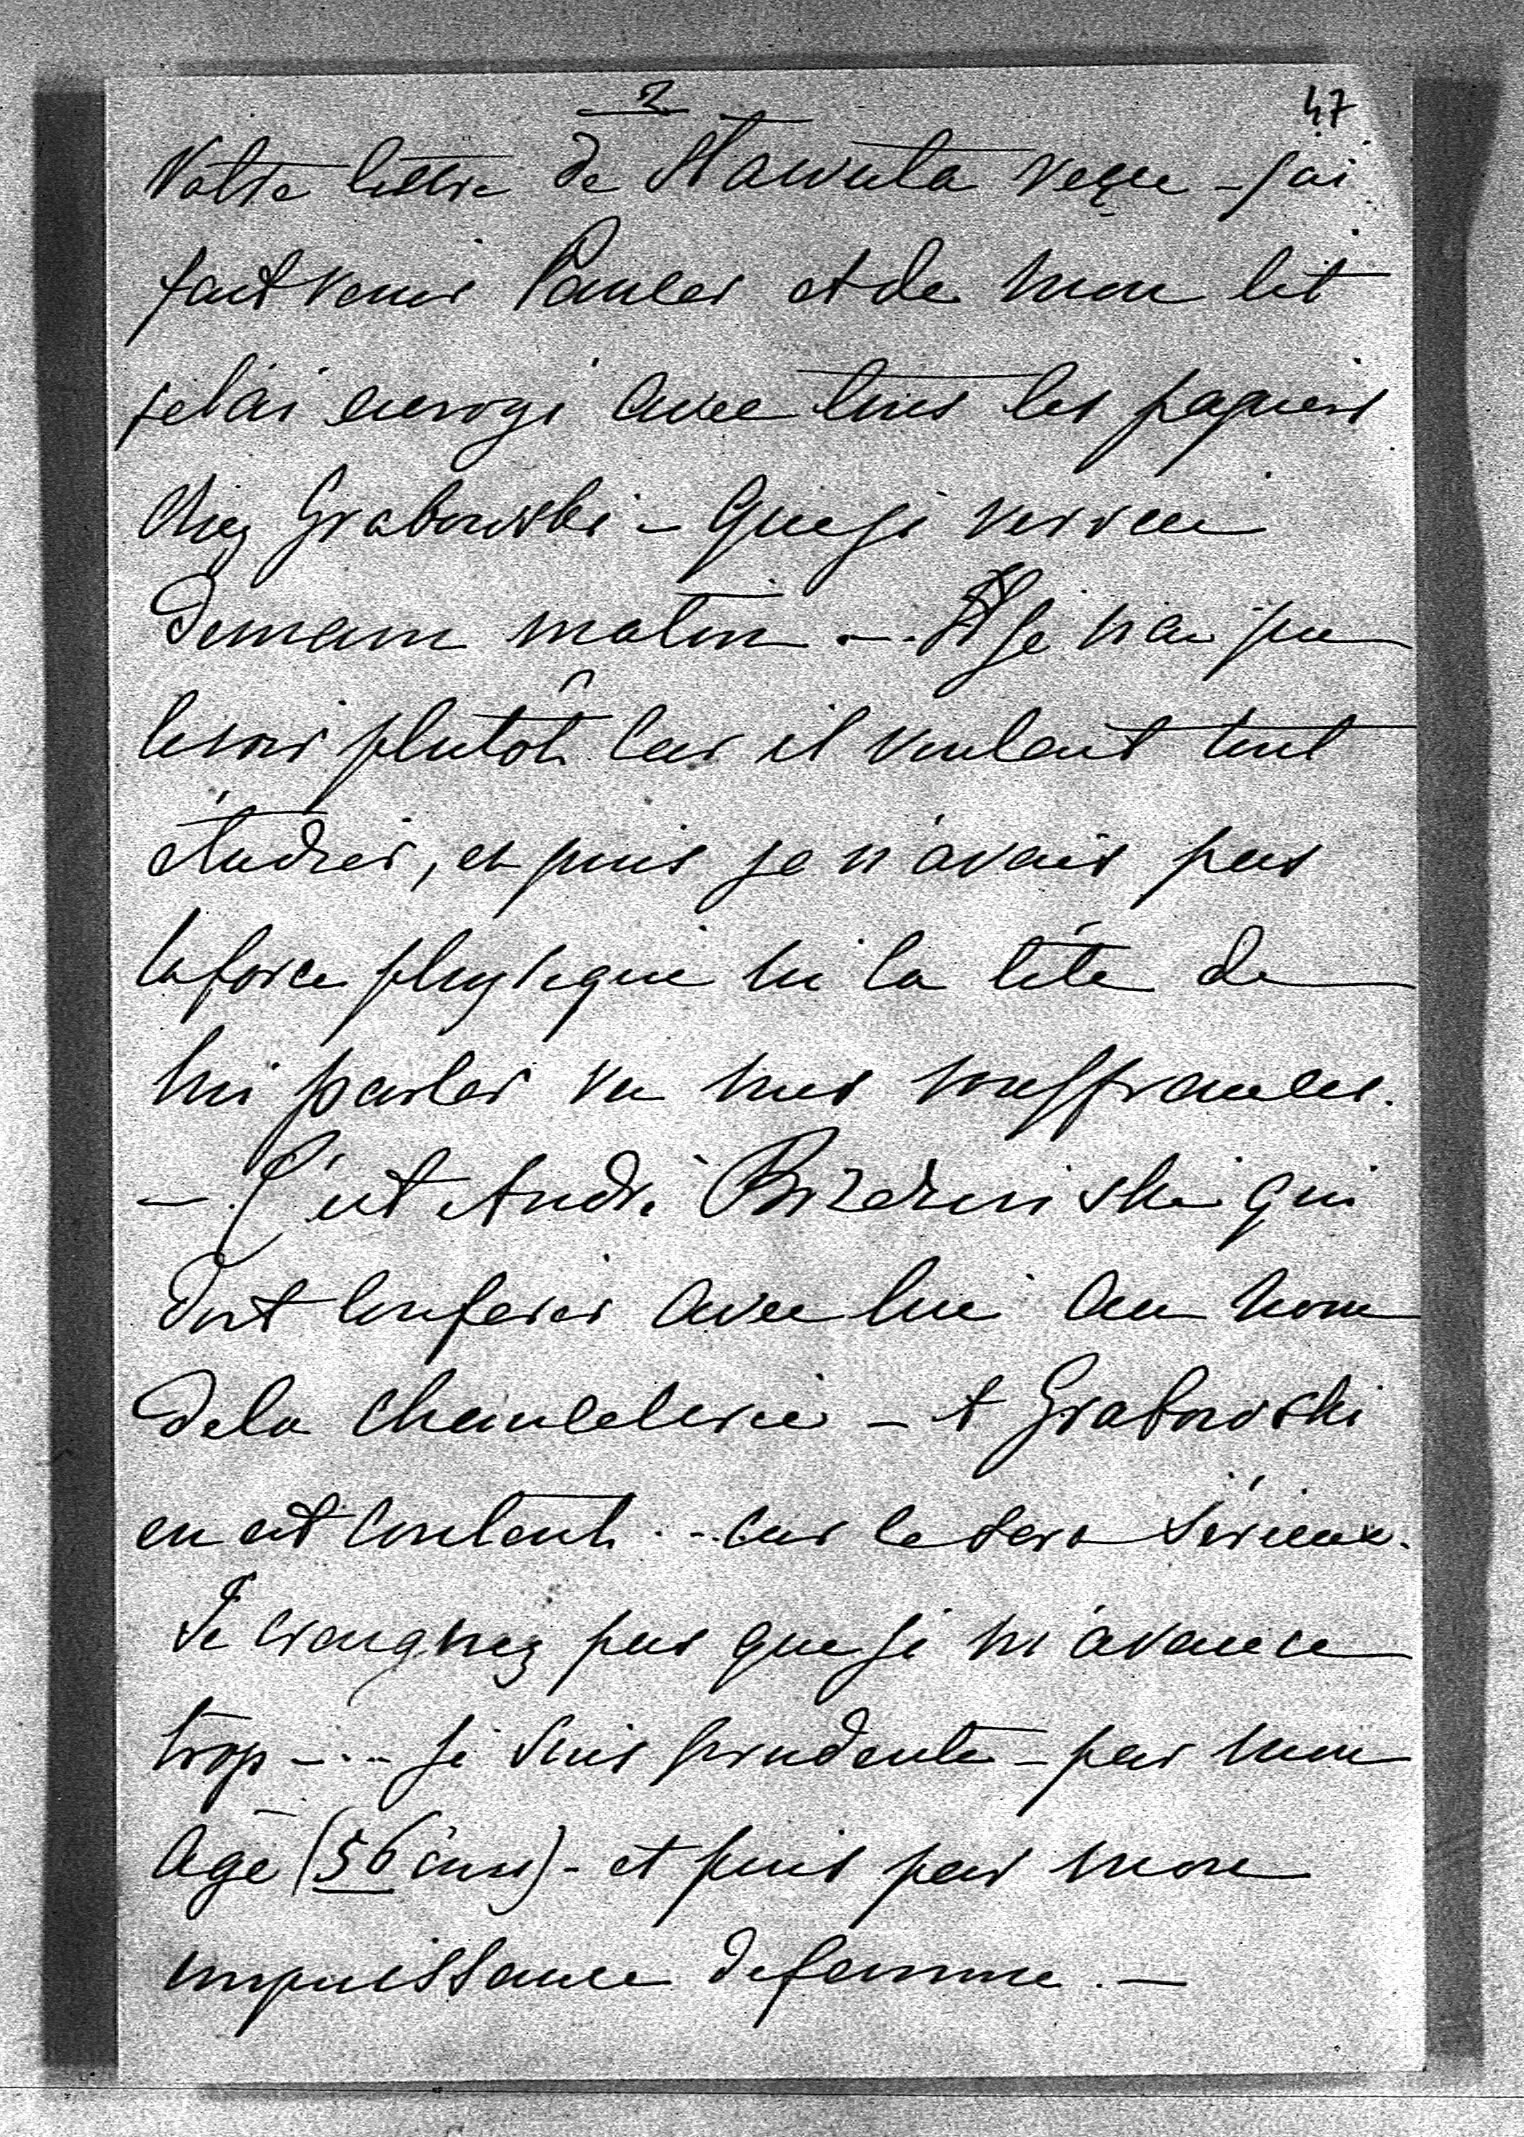 2
47
Votre lettre de Sławuta reçue – j'ai
fait venir Pauler et de mon lit
je l'ai envoyé avec tous les papiers
chez Grabowski – que je verrai
demain matin. – Je n'ai pu
le voir plutôt car il voulait tout
étudier, et puis je n'avais pas
la force physique ni la tête de
lui parler vu mes souffrances.
– C'est André qui
doit conférer avec lui au nom
de la chancelerie – et Grabowski
en est content. – car ce sera sérieux.
Ne craignez pas que je m'avance
trop – .. – je suis prudente – par mon
âge (56 ans) – et puis par mon
impuissance de femme. –